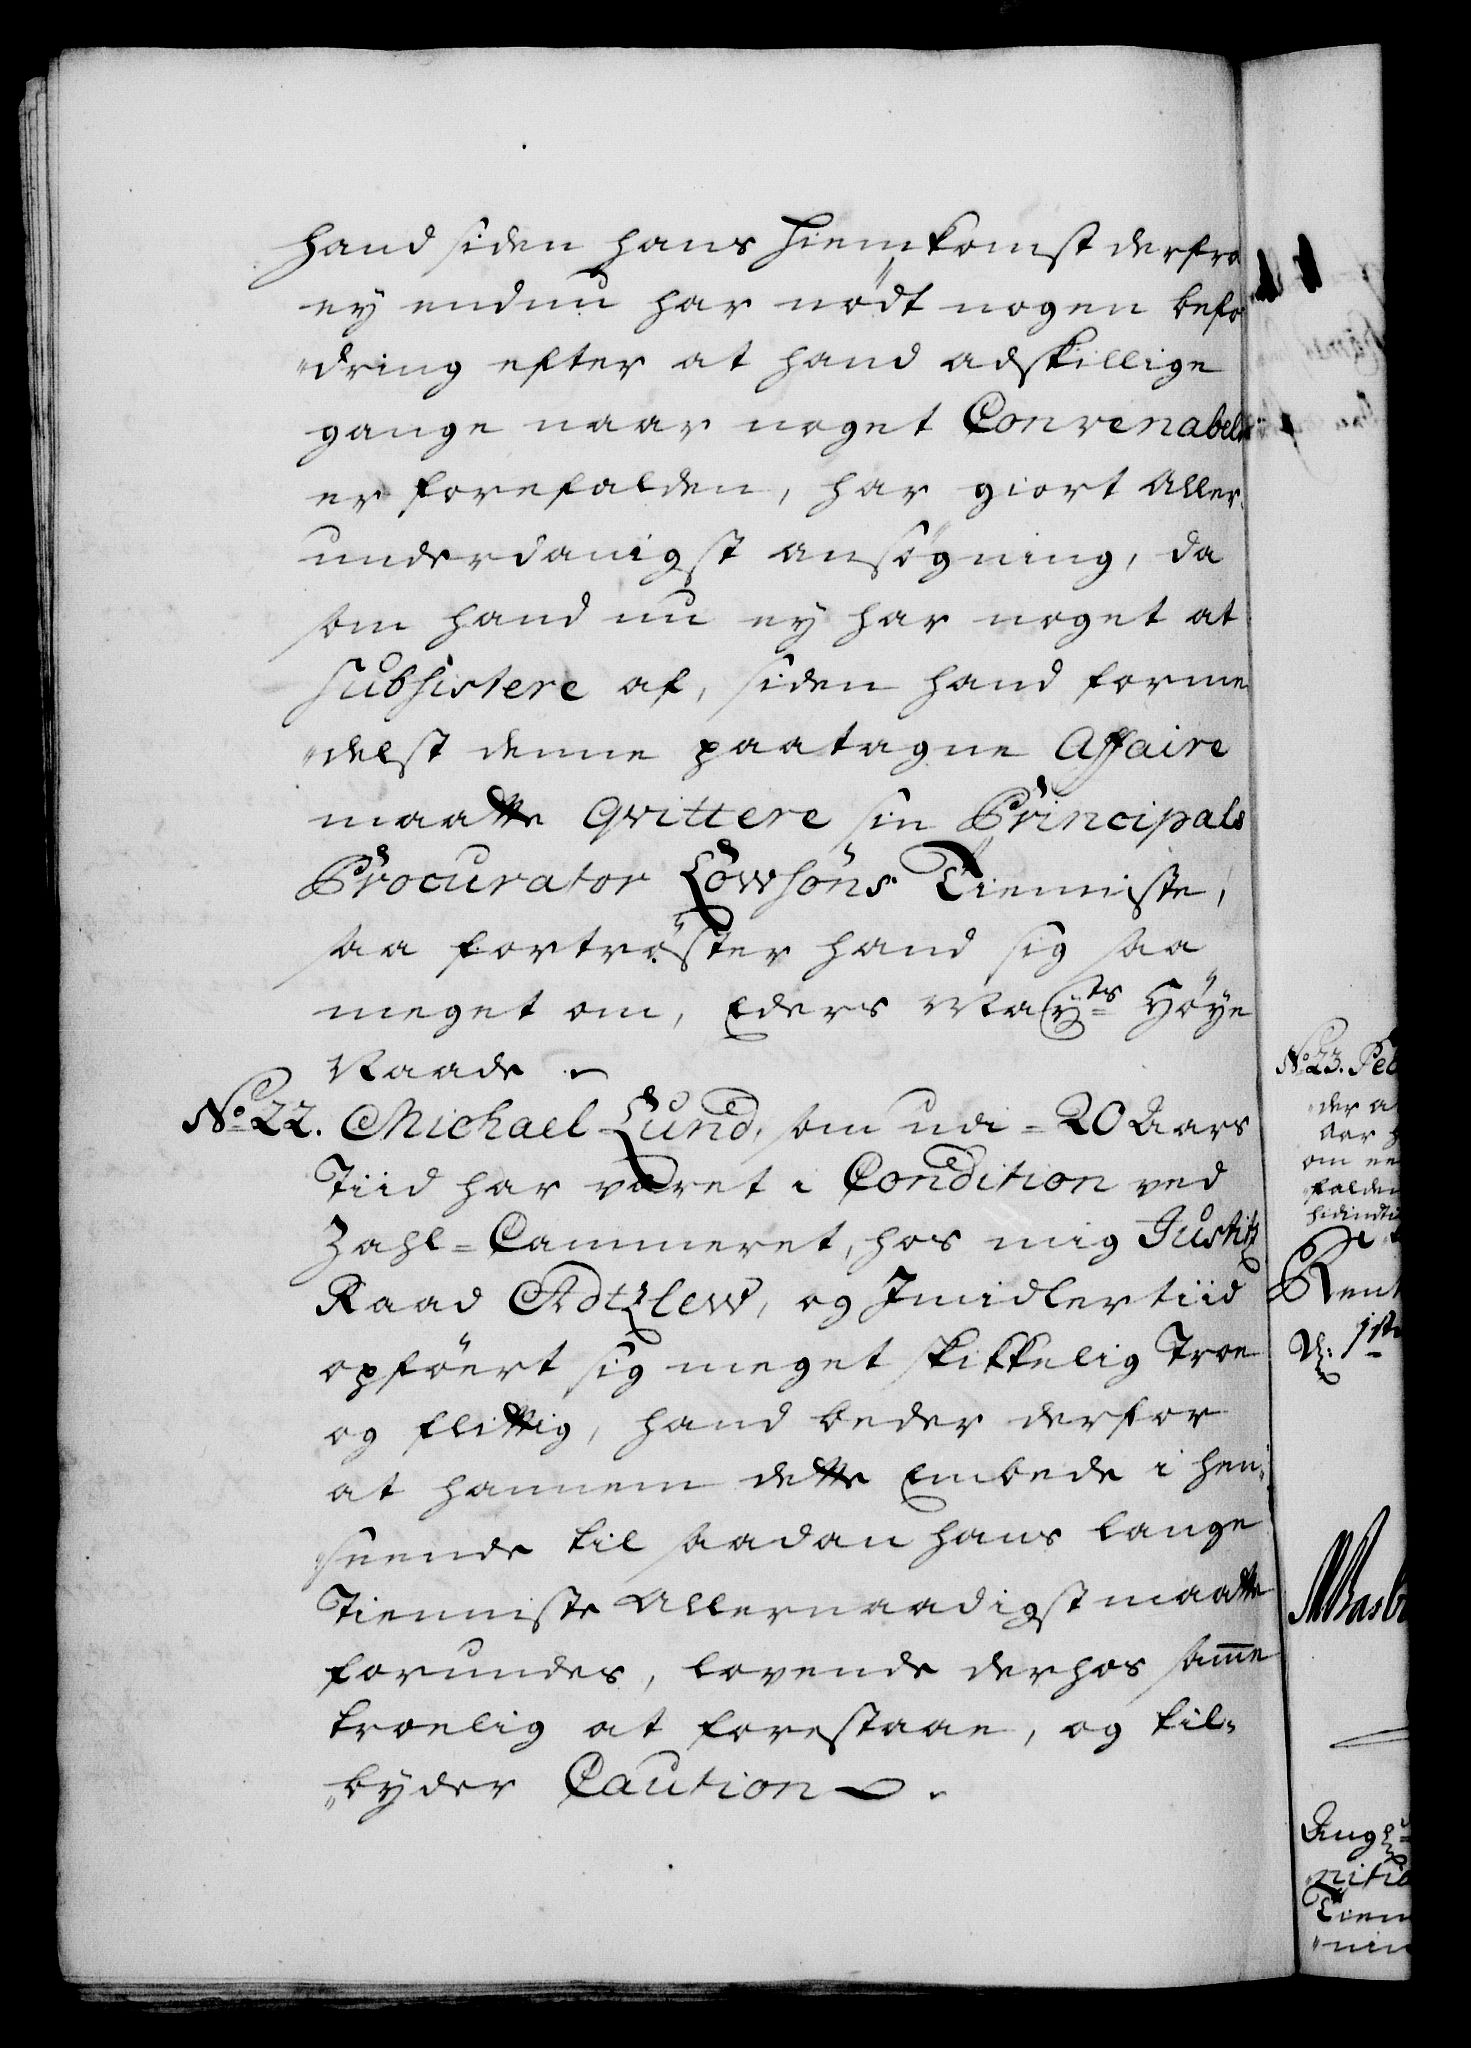 hand siden hans hiemkomst derfra
ey endnu har nödt nogen befo
„dring efter at hand adskillige
gange naar noget Convenabelt
er forefalden, har giort Aller„
underdanigst ansögning, da
som hand nu ey har noget at
Subsistere af, siden hand forme
„delst denne paatagne Affaire
maatte qvittere sin Principals
Procurator Löwsöns Tienniste,
saa fortröster hand sig saa
meget om, Eders May:ts Höye
Naade.
No 22. Michael Lund, som udi = 20 Aars
Tiid har været i Condition ved
Zahl=Cammeret, hos mig Justitz
Raad Adtzlew, og Imidlertiid
opföert sig meget skikkelig Troe
og flittig, hand beder derfor
at hannem dette Embede i hen„
„seende til saadan hans lange
Tienniste Allernaadigst maatte
forundes, lovende derhos samme
troelig at forestaae, og til„
„byder Caution.
No 23. Pet
„der a
om en
„falden
Rent
1ste
Tien